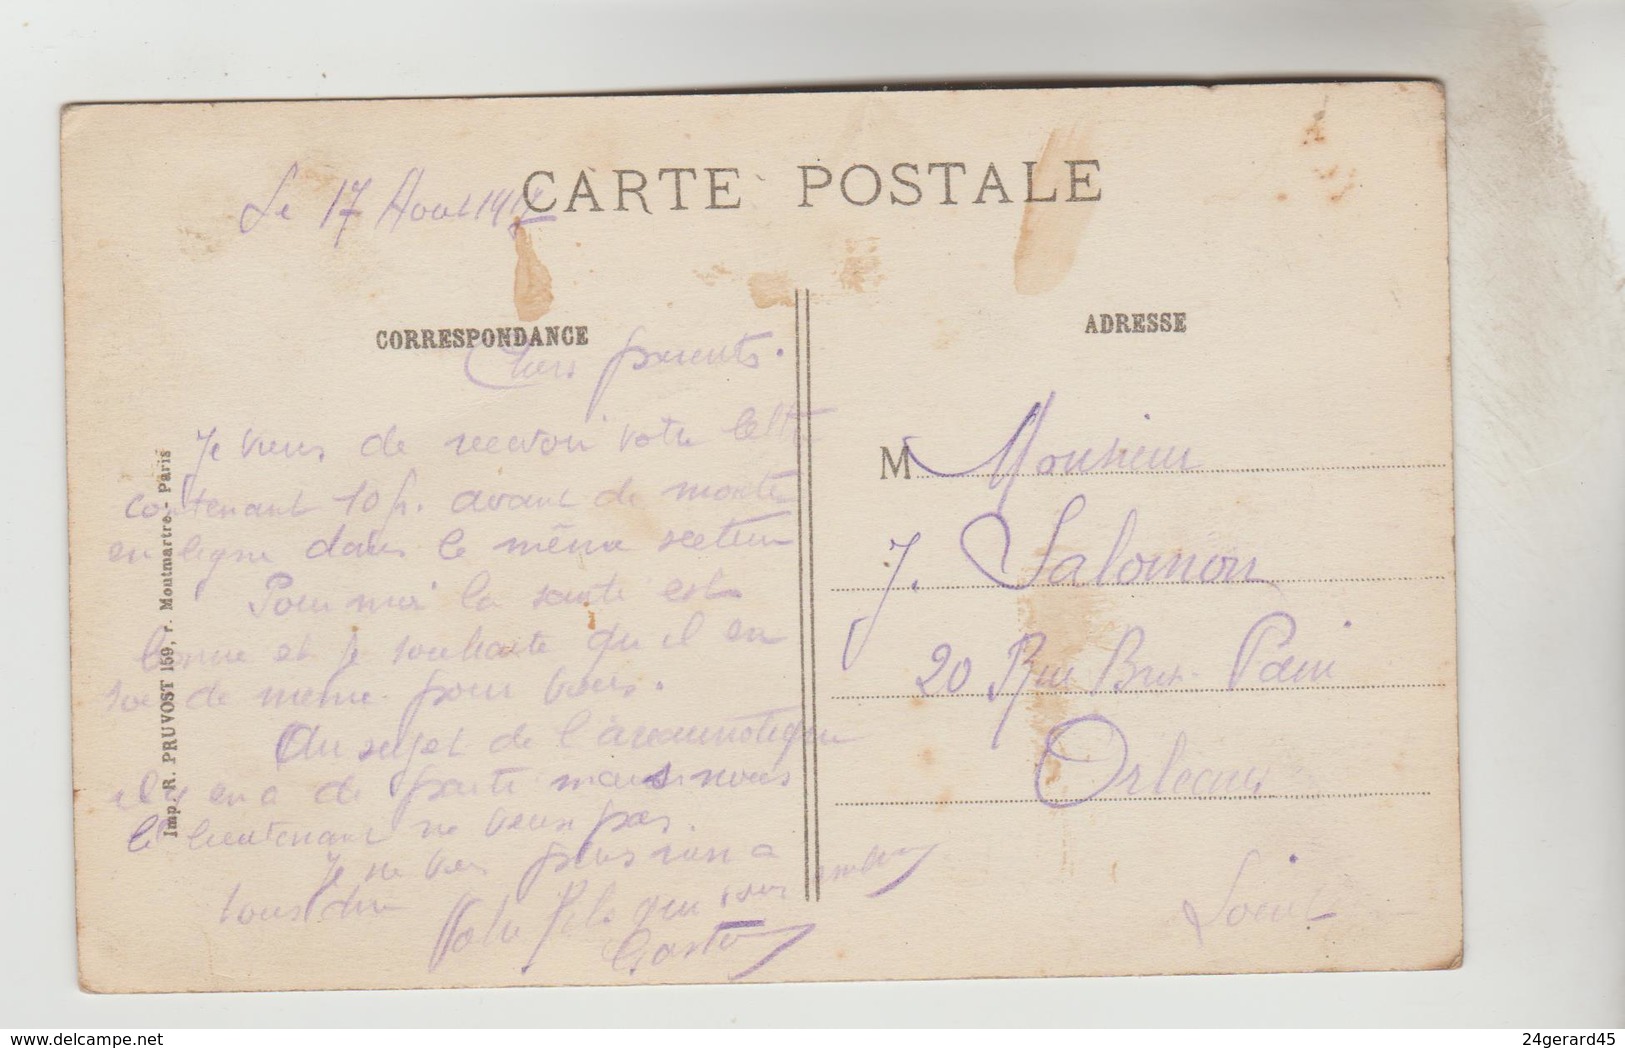 CARTE POSTALE
Le 17 Aout 1917
CORRESPONDANCE
Chers parents.
Je viens de recevoir votre lettre
contenant 10 f. avant de monter
en ligne dans le même secteur
Pour moi la sante est
bonne et je souhaite qu il en
soi de meme pour vous.
Au sujet de l
il y en a de parti mais nous
le lieutenant ne veux pas.
Je ne vois plus rien a
vous dire
Votre fils qui vous embrasse
Gaston
Imp. R. PRUVOST 159, r. Montmartre - Paris
ADRESSE
M Monsieur
J. Salomon
20 Rue Pain
Orleans
Loiret
24gerard45